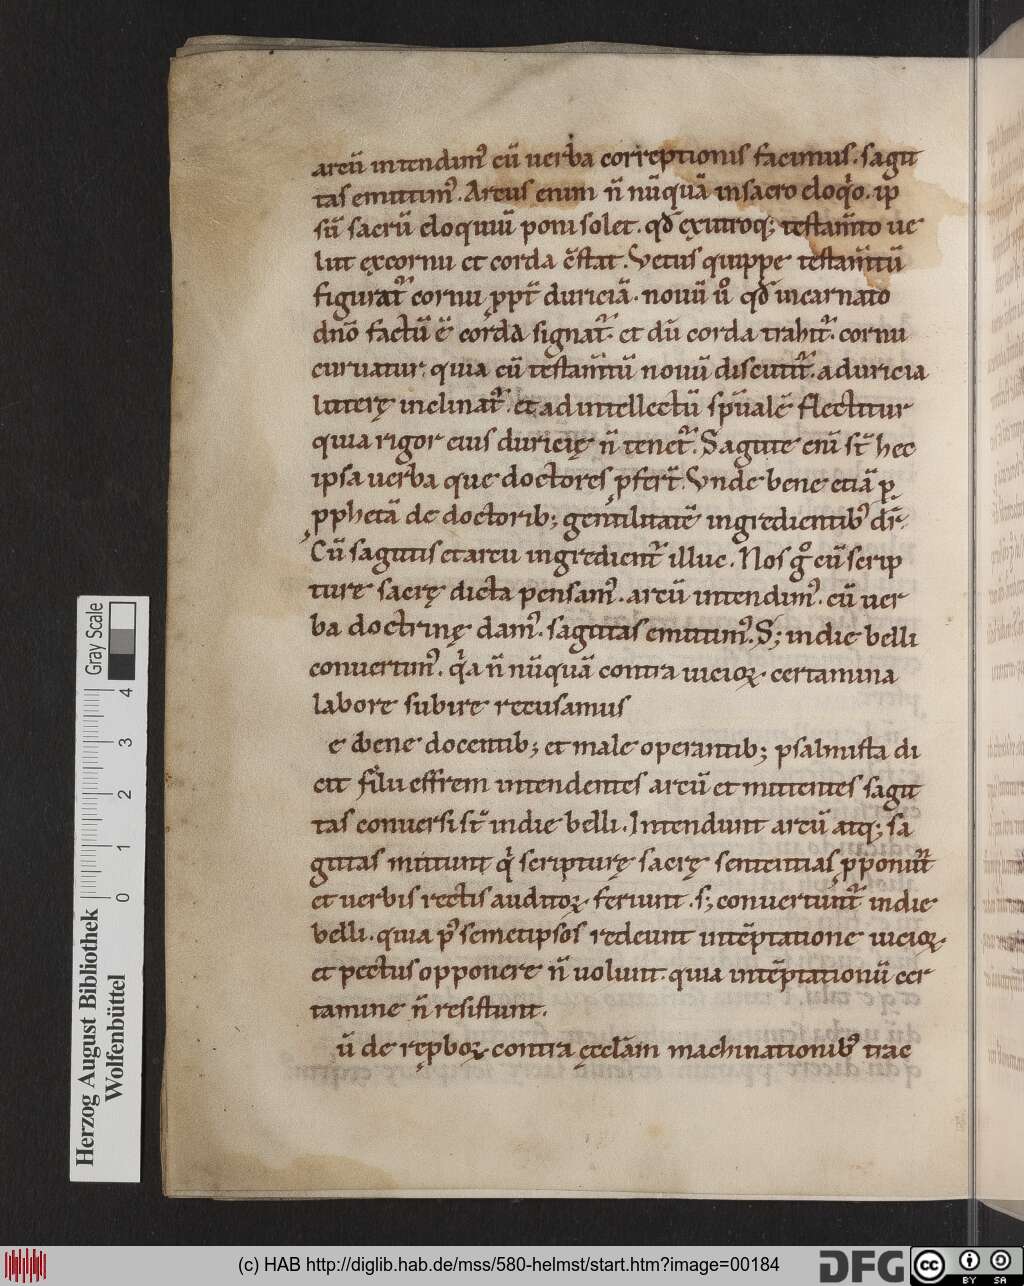 arcū intendim᷒ cū uerba correptionis facimus. sagit
tas emittim᷒. Arcus enim n̄ nūquā in sacro eloq̇o. ip
sū sacrū eloquiū poni solet. qđ ex utroq; testam̄to ue
lut ęx cornu et corda c̄stat. Vetus quippe testam̄tū
figurat᷒ cornu ꝓpt̄ duriciā. nouū ů qđ incarnato
dn̄o factū ē corda signat᷒. et dū corda trahit᷒. cornu
curuatur. quia cū testam̄tū nouū discutit᷒. a duricia
litterę inclinat᷒. et ad intellectū sp̄ualē flectitur
quia rigor eius duricię n̄ tenet᷒. Sagitte eni̅ st̄ hec
ipsa uerba que doctores ꝓfert̄. Vnde bene etiā ꝑ
ꝓphetā de doctorib; gentilitatē ingredientib᷒ dr̄.
Cū sagittis et arcu ingredient᷒ illuc. Nos gͦ cū scrip
ture sacrę dicta pensam᷒. arcū intendim᷒. cū uer
ba doctrinę dam᷒. sagittas emittim᷒. S; in die belli
conuertim᷒. q̇a n̄ nūquā contra uicioꝝ certamina
labore subire recusamus
e bene docentib; et male operantib; psalmista di
cit filii effrem intendentes arcū et mittentes sagit
tas conuersi st̄ in die belli. Intendunt arcū atq; sa
gittas mittunt q̇ scripturę sacrę sententias ꝓponūt
et uerbis rectis auditoꝝ feriunt. s; conuertunt᷒ in die
belli. quia p᷒ semetipsos redeunt in tēptatione uicioꝝ
et pectus opponere n̄ uolunt. quia in tēptationū cer
tamine n̄ resistunt.
ū de rępboꝝ contra ęcclām machinationib᷒ trac
Gray Scale
0 1 2 3 4
Herzog August Bibliothek
Wolfenbüttel
(c) HAB http://diglib.hab.de/mss/580-helmst/start.htm?image=00184
DFG
cc BY SA